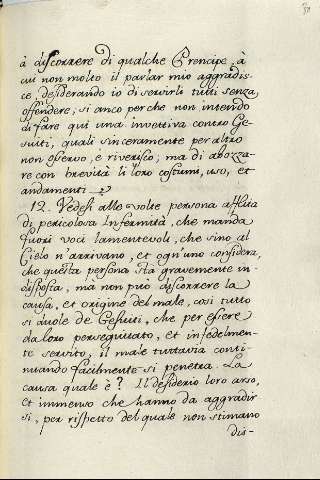 à discorrere di qualche Prencipe, à
cui non molto il parlar mio aggradis-
ce, desiderando io di servirli tutti senza
offendere; si anco perche non intendo
di fare qui una invettiva contro Ge-
suiti, quali sinceramente per altro
non osservo, e riverisco; ma di abozza-
re con brevità li loro costumi, uso, et
andamenti
12. Vedesi alle volte persona afflitta
di pericolosa Infermità, che manda
fuori voci lamentevoli, che sino al
Cielo n'arrivano, et ogn'uno considera,
che questa persona stà gravemente in-
disposta, mà non può discorrere la
causa, et origine del male, così tutto
si duole de Gesuiti, che per essere
da loro perseguitato, et infedelmen-
te servito, il male tuttavia conti-
nuando facilmente si penetra. La
causa quale è? Il desiderio loro arso,
et immenso che hanno da aggradir
si, per rispetto del quale non stimano
dis-